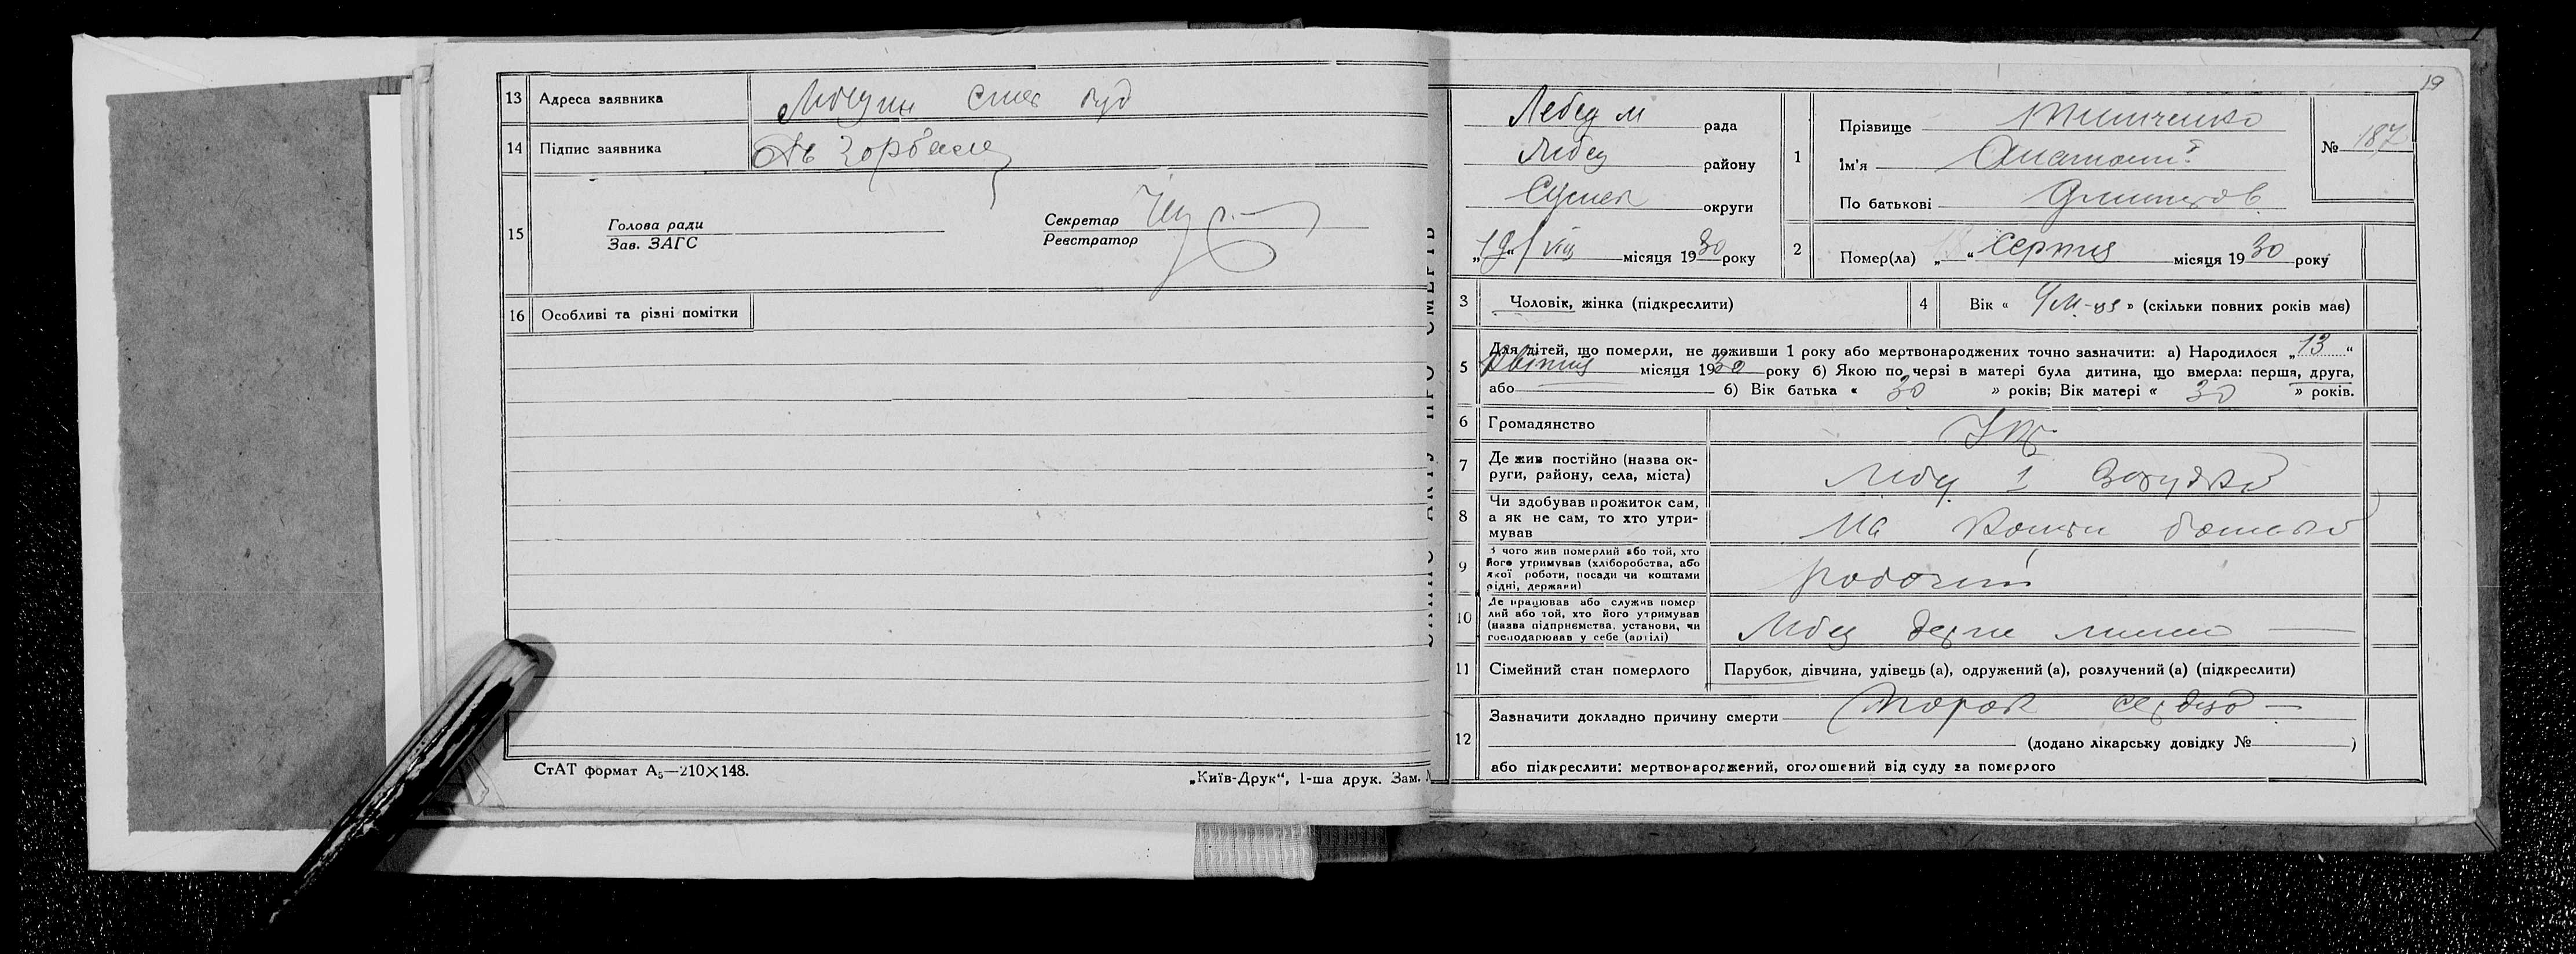 13 Адреса заявника
14 Підпис заявника
15 Голова ради
Зав. ЗАГС
Секретар
Реєстратор
16 Особливі та різні помітки
СтАТ формат А₅—210×148.
„Київ-Друк“, 1-ша друк. Зам.
19
Лебед м рада
Лебед району
Сумськ округи
„19“ VIII місяця 1930 року
1 Прізвище
Ім'я Анатолий
По батькові
№ 187
2 Помер(ла) „ “ серпня місяця 1930 року
3 Чоловік, жінка (підкреслити)
4 Вік « 4 м-ця » (скільки повних років має)
5 Для дітей, що померли, не доживши 1 року або мертвонароджених точно зазначити: а) Народилося „13“
квітня місяця 1930 року б) Якою по черзі в матері була дитина, що вмерла: перша, друга,
або б) Вік батька « 30 » років; Вік матері « 30 » років.
6 Громадянство
7 Де жив постійно (назва округи, району, села, міста) Лебед 1
8 Чи здобував прожиток сам,
а як не сам, то хто утримував
На кошти батьків
9 З чого жив померлий або той, хто
його утримував (хліборобства, або
якої роботи, посади чи коштами
рідні, держави)
робочий
10 Де працював або служив помер
лий або той, хто його утримував
(назва підприємства, установи, чи
господарював у себе (артілі)
Лебед
11 Сімейний стан померлого Парубок, дівчина, удівець (а), одружений (а), розлучений (а) (підкреслити)
12 Зазначити докладно причину смерти Порок сердца
(додано лікарську довідку № )
або підкреслити: мертвонароджений, оголошений від суду за померлого